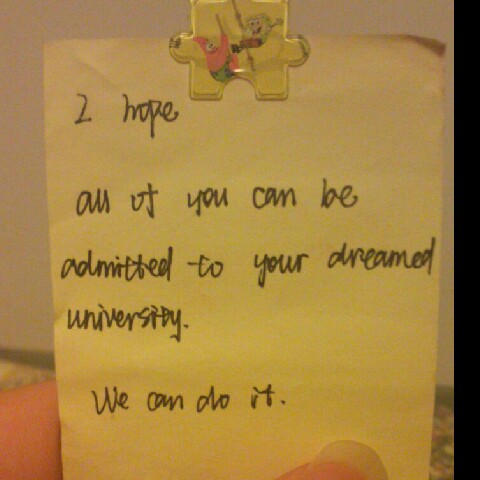 I hope
all of you can be
admitted to your dreamed
university.
We can do it.